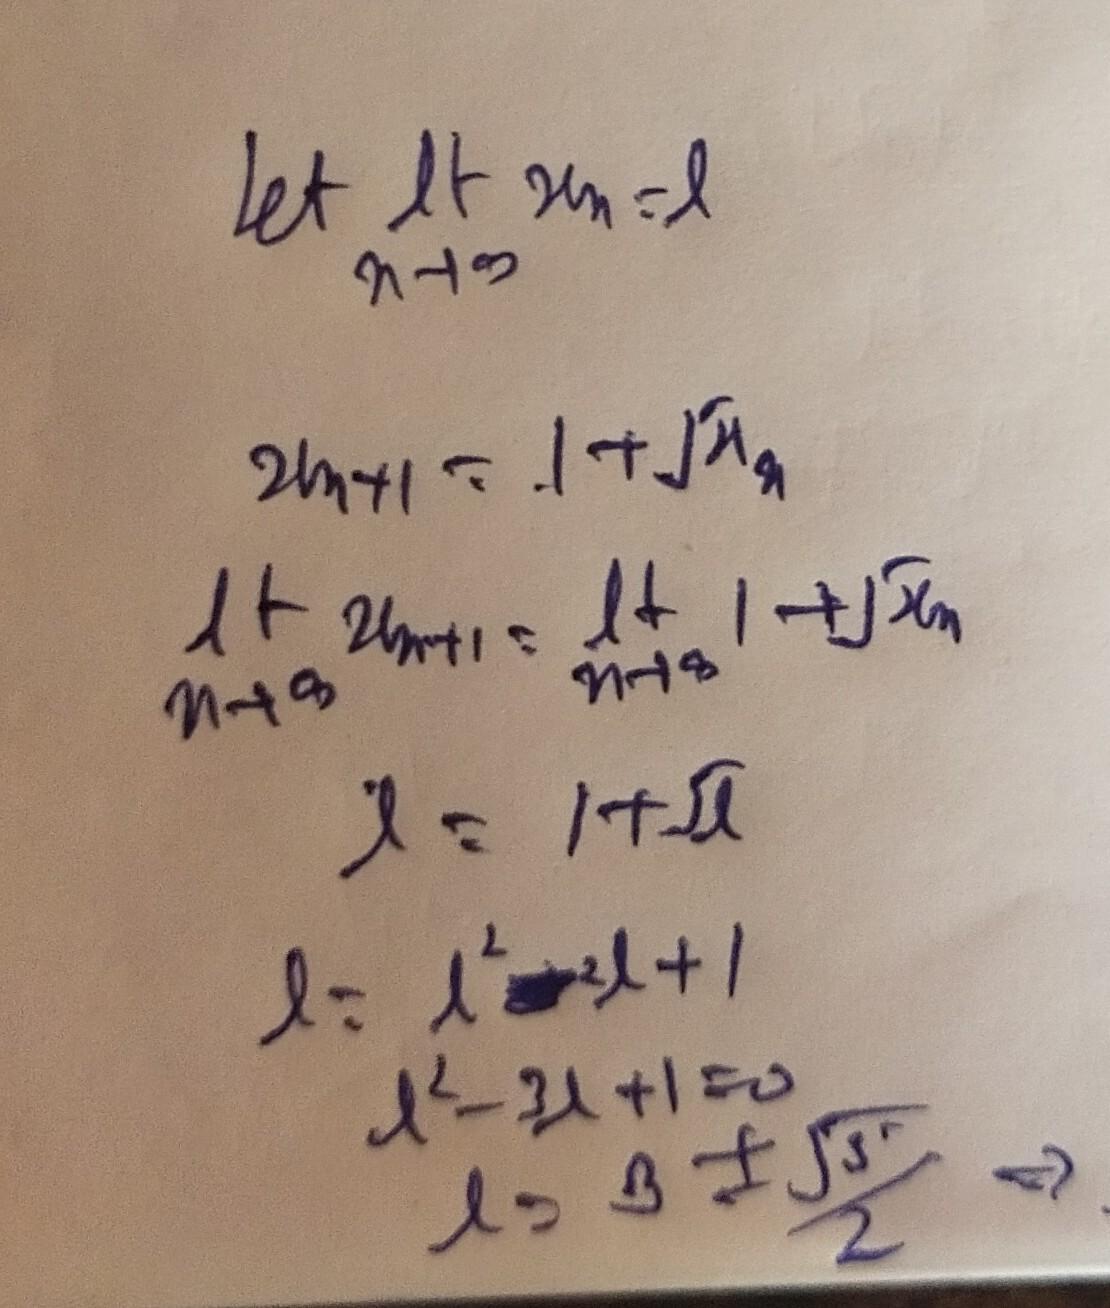 Let lt xn = l
n→∞
xn+1 = 1 + √xn
lt xn+1 = lt 1 + √xn
n→∞ n→∞
l = 1 + √l
l = l² - 2l + 1
l² - 3l + 1 = 0
l = 3 ± √5 / 2 ⇒